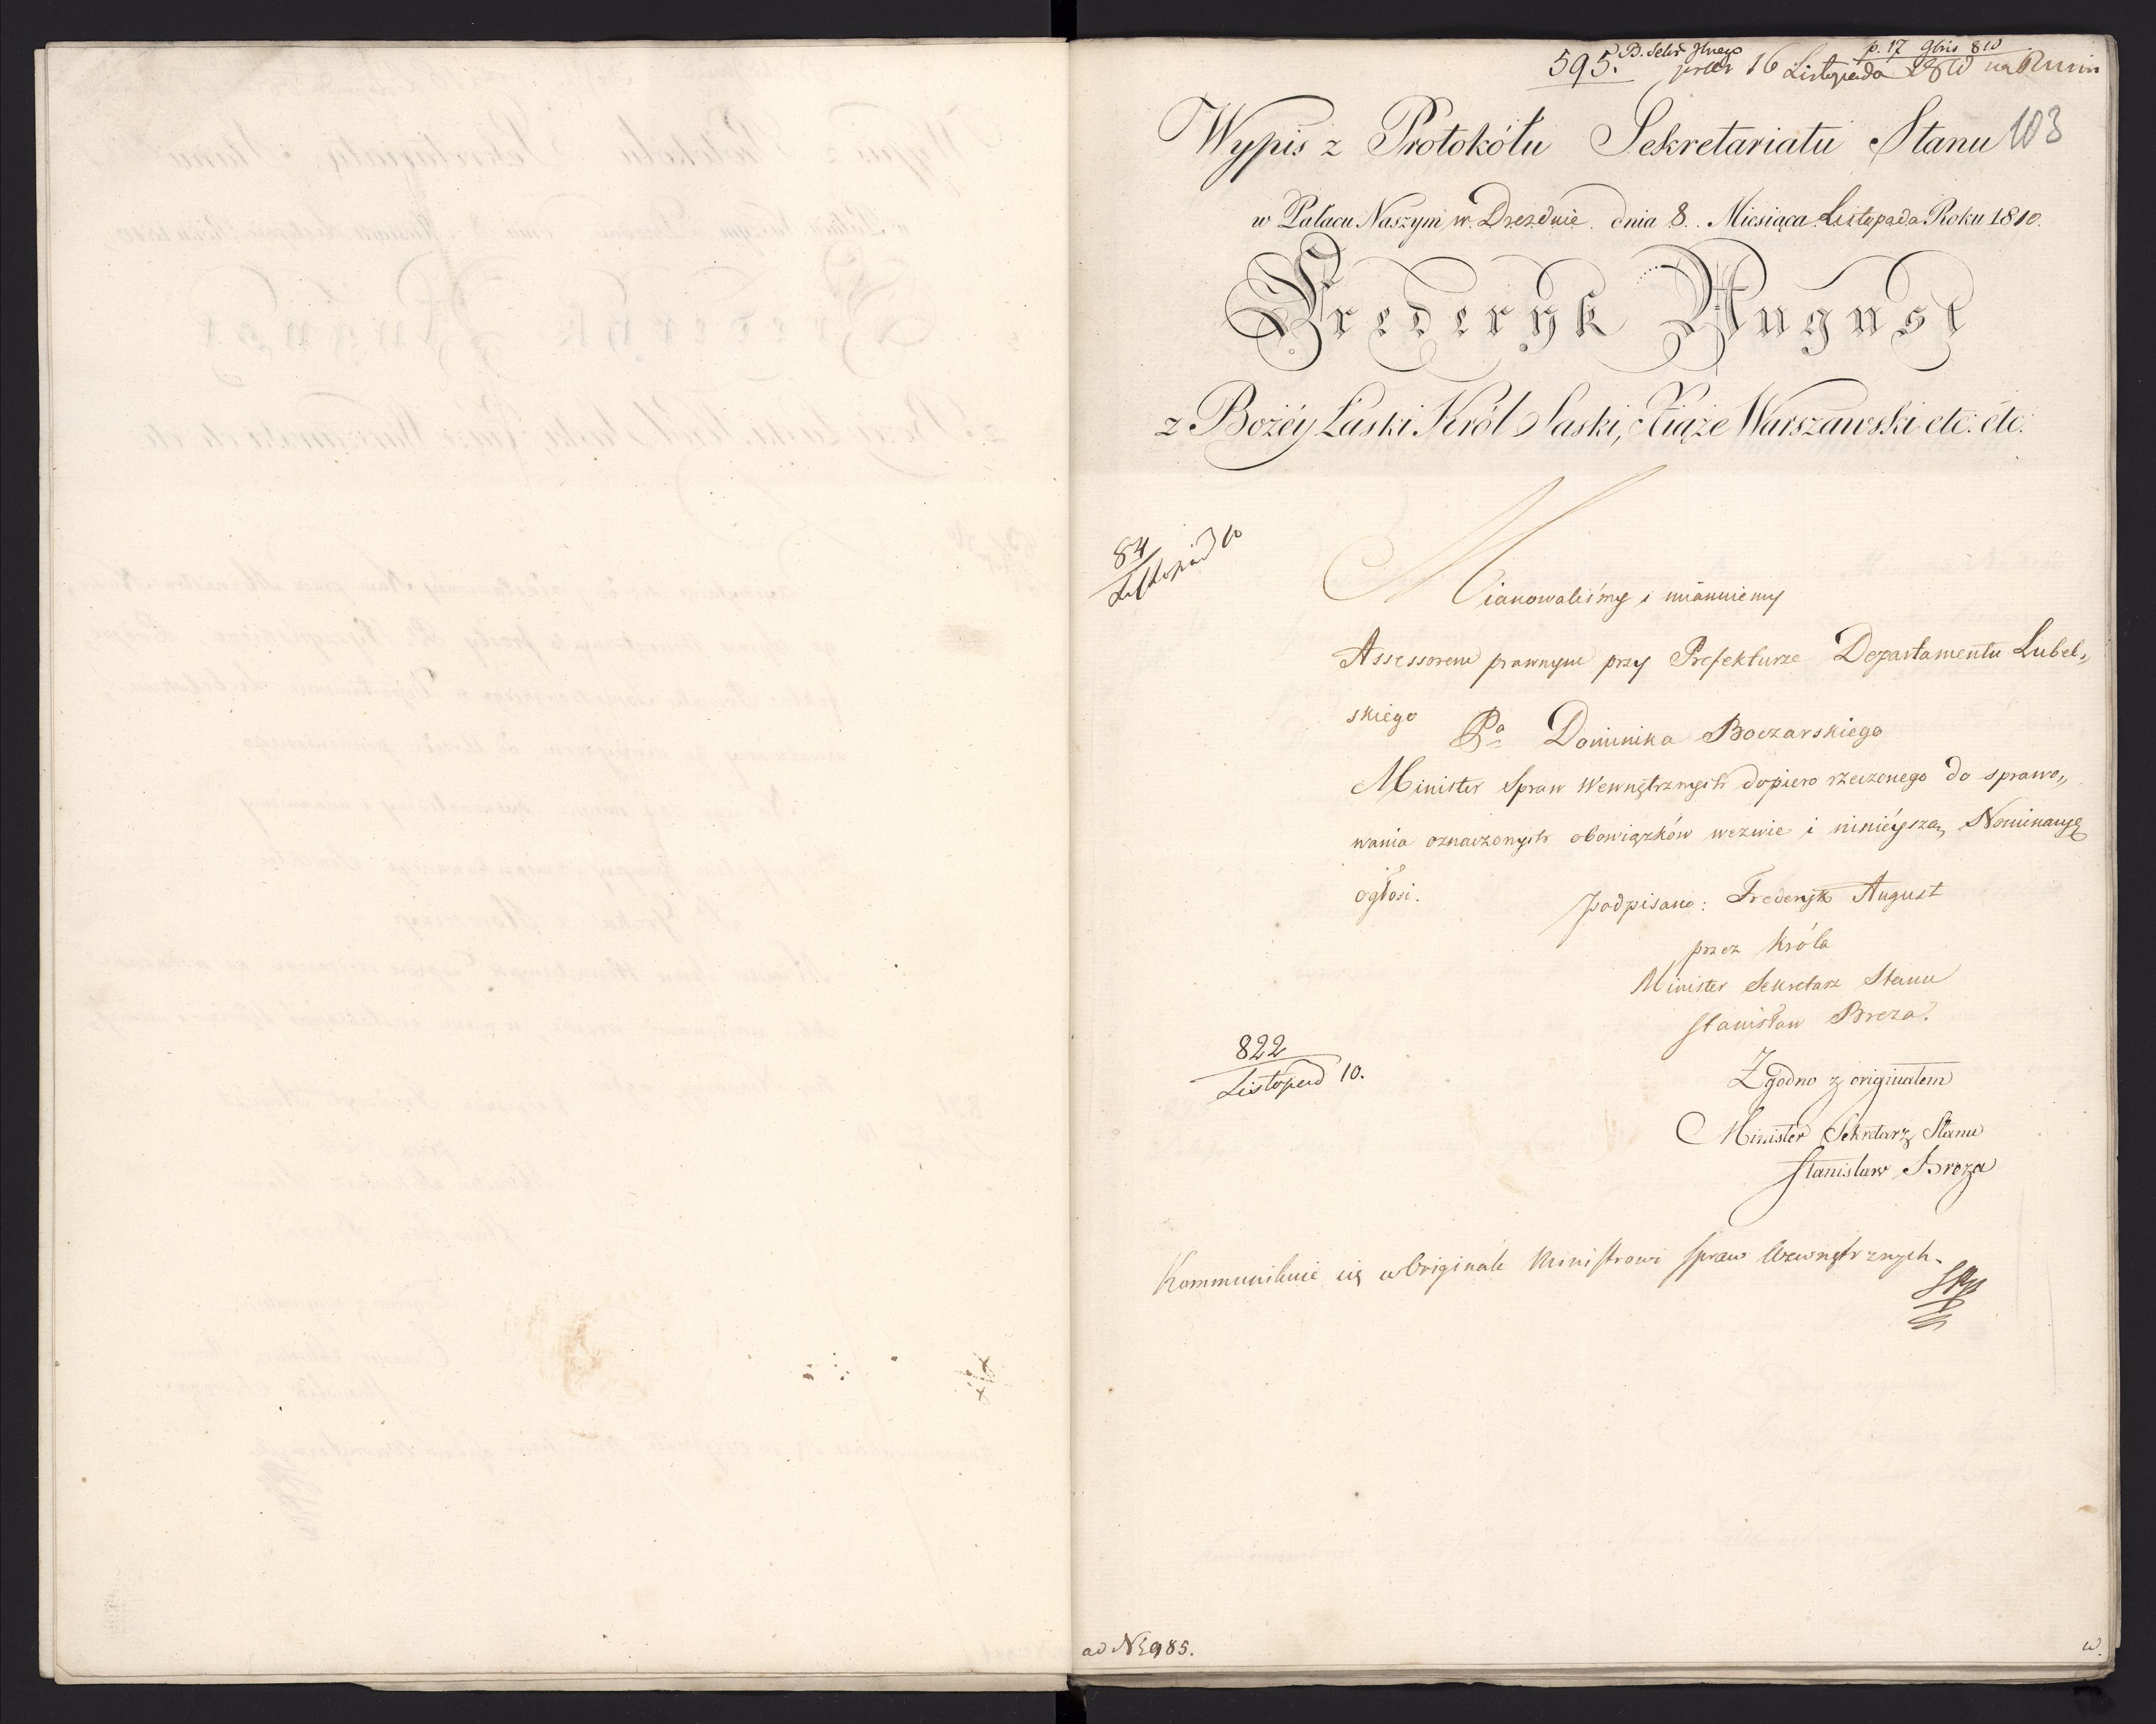 595. B. Sekr Glnego p. 17 9bris 810
16 Listopada 1810
Wypis z Protokółu Sekretariatu Stanu 103
w Pałacu Naszym w Dreznie dnia 8. Miesiąca Listopada Roku 1810.
Frederyk August
z Bożéy Łaski Król Saski, Xiąże Warszawski etc: etc:
84
Listopad 10
Mianowaliśmy i mianuiemy
Assessorem prawnym przy Prefekturze Departamentu Lubel„
skiego Pa Dominika Boczarskiego
Minister Spraw Wewnętrznych dopiero rzeczonego do sprawo„
wania oznaczonych obowiązków wezwie i ninieyszą Nominacyę
ogłosi. podpisano: Frederyk August
przez Króla
Minister Sekretarz Stanu
Stanisław Breza.
822
Listopad 10.
Zgodno z originałem
Minister Sekretarz Stanu
Stanisław Breza
Kommunikuie się w Originale Ministrowi Spraw Wewnętrznych.
ad N 985.
w.